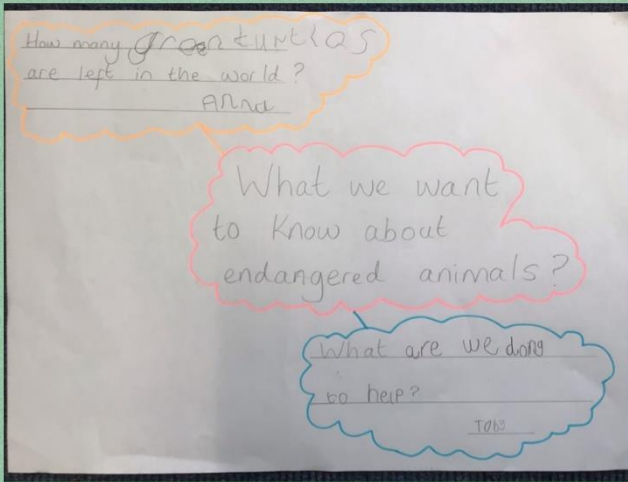 How many green turtles
are left in the world?
Anna
What we want
to know about
endangered animals?
What are we doing
to help?
Toby